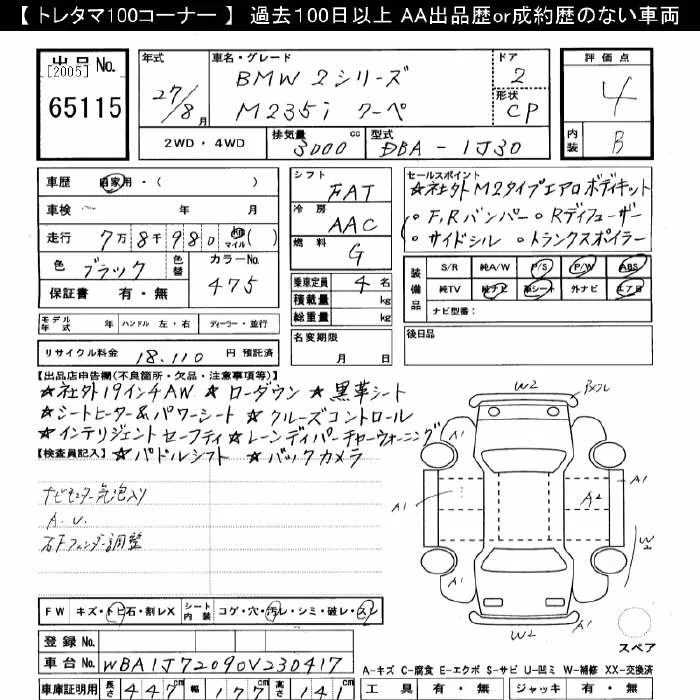 【 トレタマ100コーナー 】 過去100日以上 AA出品歴or成約歴のない車両
出品 No.
[2005]
65115
年式
27/8月
車名・グレード
BMW 2シリーズ
M235i クーペ
ドア
2
形状
CP
2WD・4WD
排気量
3000 cc
型式
DBA - 1J30
評価点
4
内装
B
車歴 自家用・( )
車検 年 月
走行 7万8千980 km マイル ( )
色 ブラック 色替 カラーNo. 475
保証書 有・無
シフト
FAT
冷房
AAC
燃料
G
乗車定員 4 名
積載量 kg
総重量 kg
セールスポイント
☆社外M2タイプエアロボディキット
(◦F,Rバンパー ◦Rディフューザー
◦サイドシル ◦トランクスポイラー
装備品
S/R 純A/W P/S P/W ABS
純TV 純ナビ 革シート 外ナビ エアB
ナビ型番:
モデル年式 年 ハンドル 左・右 ディーラー・並行
名変期限
月 日
後日品
リサイクル料金 18,110 円 預託済
【出品店申告欄(不良箇所・欠品・注意事項等)】
☆社外19インチAW ☆ ローダウン ☆ 黒革シート
☆シートヒーター&パワーシート ☆ クルーズコントロール
☆インテリジェントセーフティ ☆レーンディパーチャーウォーニング
【検査員記入】 ☆パドルシフト ☆ バックカメラ
ナビモニター気泡入り
A.U.
右Fフェンダー調整
W2
A1
A1
A1
A2
A1
W2
A1
A1
W2
スペア
FW キズ・トビ石・割レX シート内装 コゲ・穴・汚レ・シミ・破レ・スレ
登録 No.
車台 No. WBA1J72090V230417
A-キズ C-腐食 E-エクボ S-サビ U-凹ミ W-補修 XX-交換済
車庫証明用 長さ 447 cm 幅 177 cm 高さ 141 cm
工具 有・無 ジャッキ 有・無